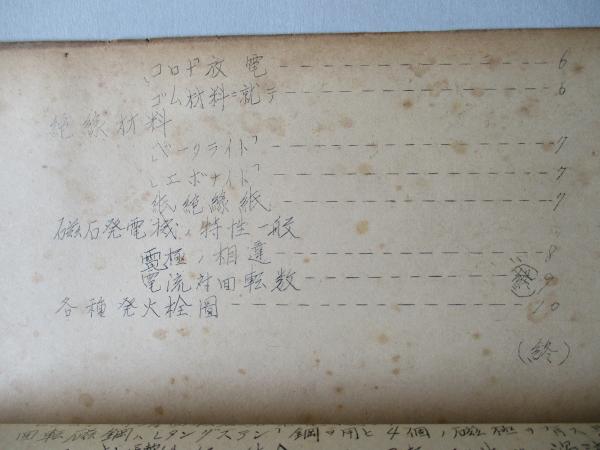 「コロナ放電 ---------------- 6
ゴム材料ニ就テ ---------------- 6
絶縁材料
「ベークライト」 ---------------- 7
「エボナイト」 ---------------- 7
紙絶縁紙 ---------------- 7
磁石発電機ノ特性一般
電極ノ相違 ---------------- 8
電流対回転数 ---------------- 9
各種発火栓圖 ---------------- 10
(終)
回転磁鋼ハ「タングステン」鋼ヲ用ヒ4個ノ磁極ヲ